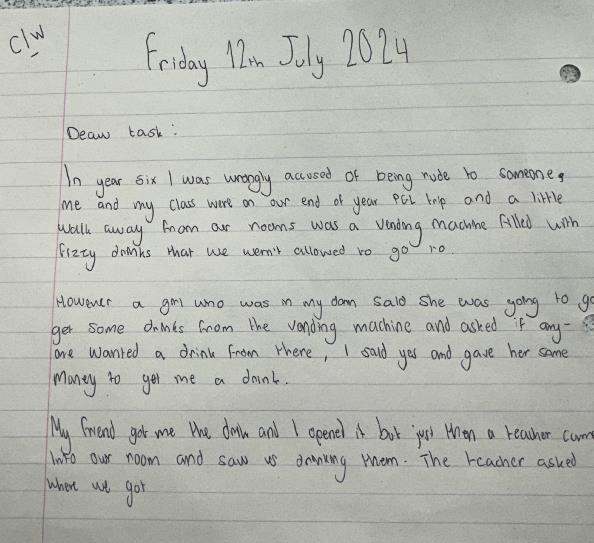 C/W
Friday 12th July 2024
Deaw task :
In year six I was wrongly accused of being rude to someone,
me and my class were on our end of year PGL trip and a little
walk away from our rooms was a vending machine filled with
fizzy drinks that we wern't allowed to go to.
However a girl who was in my dorm said she was going to go
get some drinks from the vending machine and asked if any-
one wanted a drink from there, I said yes and gave her some
money to get me a drink.
My friend got me the drink and I opened it but just then a teacher came
into our room and saw us drinking them. The teacher asked
where we got